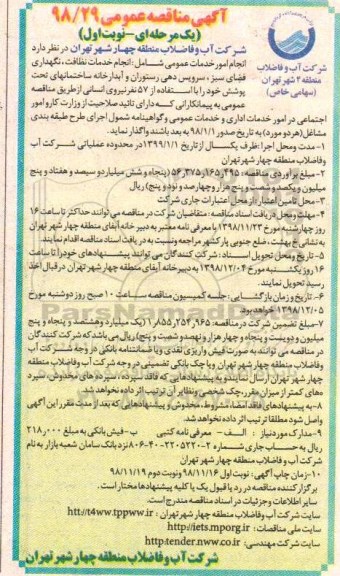 آگهی مناقصه عمومی ۹۸/۲۹
(یک مرحله‌ای-نوبت اول)
شرکت آب و فاضلاب
منطقه ۴ شهر تهران
(سهامی خاص)
شرکت آب و فاضلاب منطقه چهار شهر تهران در نظر دارد
انجام امور خدمات عمومی شامل: انجام خدمات نظافت، نگهداری
فضای سبز، سرویس دهی رستوران و آبدارخانه ساختمانهای تحت
پوشش خود را با استفاده از ۵۷ نفر نیروی انسانی از طریق مناقصه
عمومی به پیمانکارانی که دارای تائید صلاحیت از وزارت کار و امور
اجتماعی در امور خدمات اداری و خدمات عمومی و گواهینامه شمول اجرای طرح طبقه بندی
مشاغل (هر دو مورد) به تاریخ صدور ۹۸/۱/۱ به بعد باشند واگذار نماید.
۱- مدت و محل اجرا: ظرف یکسال از تاریخ ۱۳۹۹/۱/۱ در محدوده عملیاتی شرکت آب
وفاضلاب منطقه چهار شهر تهران
۲- مبلغ برآوردی مناقصه: ۵۶,۳۷۵,۱۶۵,۴۹۵ (پنجاه و شش میلیارد و سیصد و هفتاد و پنج
میلیون و یکصد و شصت و پنج هزار و چهارصد و نود و پنج) ریال
۳- محل تامین اعتبار: از محل اعتبارات جاری شرکت
۴- مهلت و محل دریافت اسناد مناقصه: متقاضیان شرکت در مناقصه می توانند حداکثر تا ساعت ۱۶
روز چهارشنبه مورخ ۱۳۹۸/۱۱/۲۳ با معرفی نامه معتبر به دبیرخانه آبفای منطقه چهار شهر تهران
به نشانی خ بهشت، ضلع جنوبی پارکشهر مراجعه و نسبت به دریافت اسناد مناقصه اقدام نمایند.
۵- تاریخ و محل تحویل اسناد: شرکت کنندگان می توانند پیشنهادهای خود را تا ساعت
۱۶ روز یکشنبه مورخ ۱۳۹۸/۱۲/۰۴ به دبیرخانه آبفای منطقه چهار شهر تهران در قبال اخذ
رسید تحویل نمایند.
۶- تاریخ و زمان بازگشایی: جلسه کمیسیون مناقصه ساعت ۱۰ صبح روز دوشنبه مورخ
۱۳۹۸/۱۲/۰۵ خواهد بود.
۷- مبلغ تضمین شرکت در مناقصه: ۱,۸۵۵,۲۵۴,۹۶۵ (یک میلیارد و هشتصد و پنجاه و پنج
میلیون و دویست و پنجاه و چهار هزار و نهصد و شصت و پنج) ریال می باشد که شرکت کنندگان
در مناقصه می توانند به صورت فیش واریزی نقدی و یا ضمانتنامه بانکی در وجه شرکت آب
وفاضلاب منطقه چهار شهر تهران و یا چک بانکی تضمینی در وجه شرکت آب وفاضلاب منطقه
چهار شهر تهران ارسال نمایند و به پیشنهادهایی که فاقد سپرده، سپرده های مخدوش، سپرده
های کمتر از میزان مقرر، چک شخصی و نظایر آن ترتیب اثر داده نخواهد شد.
۸- به پیشنهادهای فاقد امضا، مشروط، مخدوش و پیشنهادهایی که بعد از مدت مقرر این آگهی
واصل شود مطلقا ترتیب اثر داده نخواهد شد.
۹- مدارک مورد نیاز: الف - معرفی نامه کتبی ب - فیش بانکی به مبلغ ۲۱۸,۰۰۰
شرکت آب و فاضلاب منطقه چهار شهر تهران
۱۰- زمان چاپ آگهی: نوبت اول ۹۸/۱۱/۱۶ و نوبت دوم ۹۸/۱۱/۱۹
برگزار کننده مناقصه در رد یا قبول یک یا کلیه پیشنهادها مختار است.
سایر اطلاعات و جزئیات در اسناد مناقصه مندرج است.
سایت شرکت آب و فاضلاب منطقه چهار شهر تهران: htt://t4ww.tppww.ir
سایت ملی مناقصات: http://iets.mporg.ir
سایت شرکت مهندسی: http:tender.nww.co.ir
شرکت آب و فاضلاب منطقه چهار شهر تهران